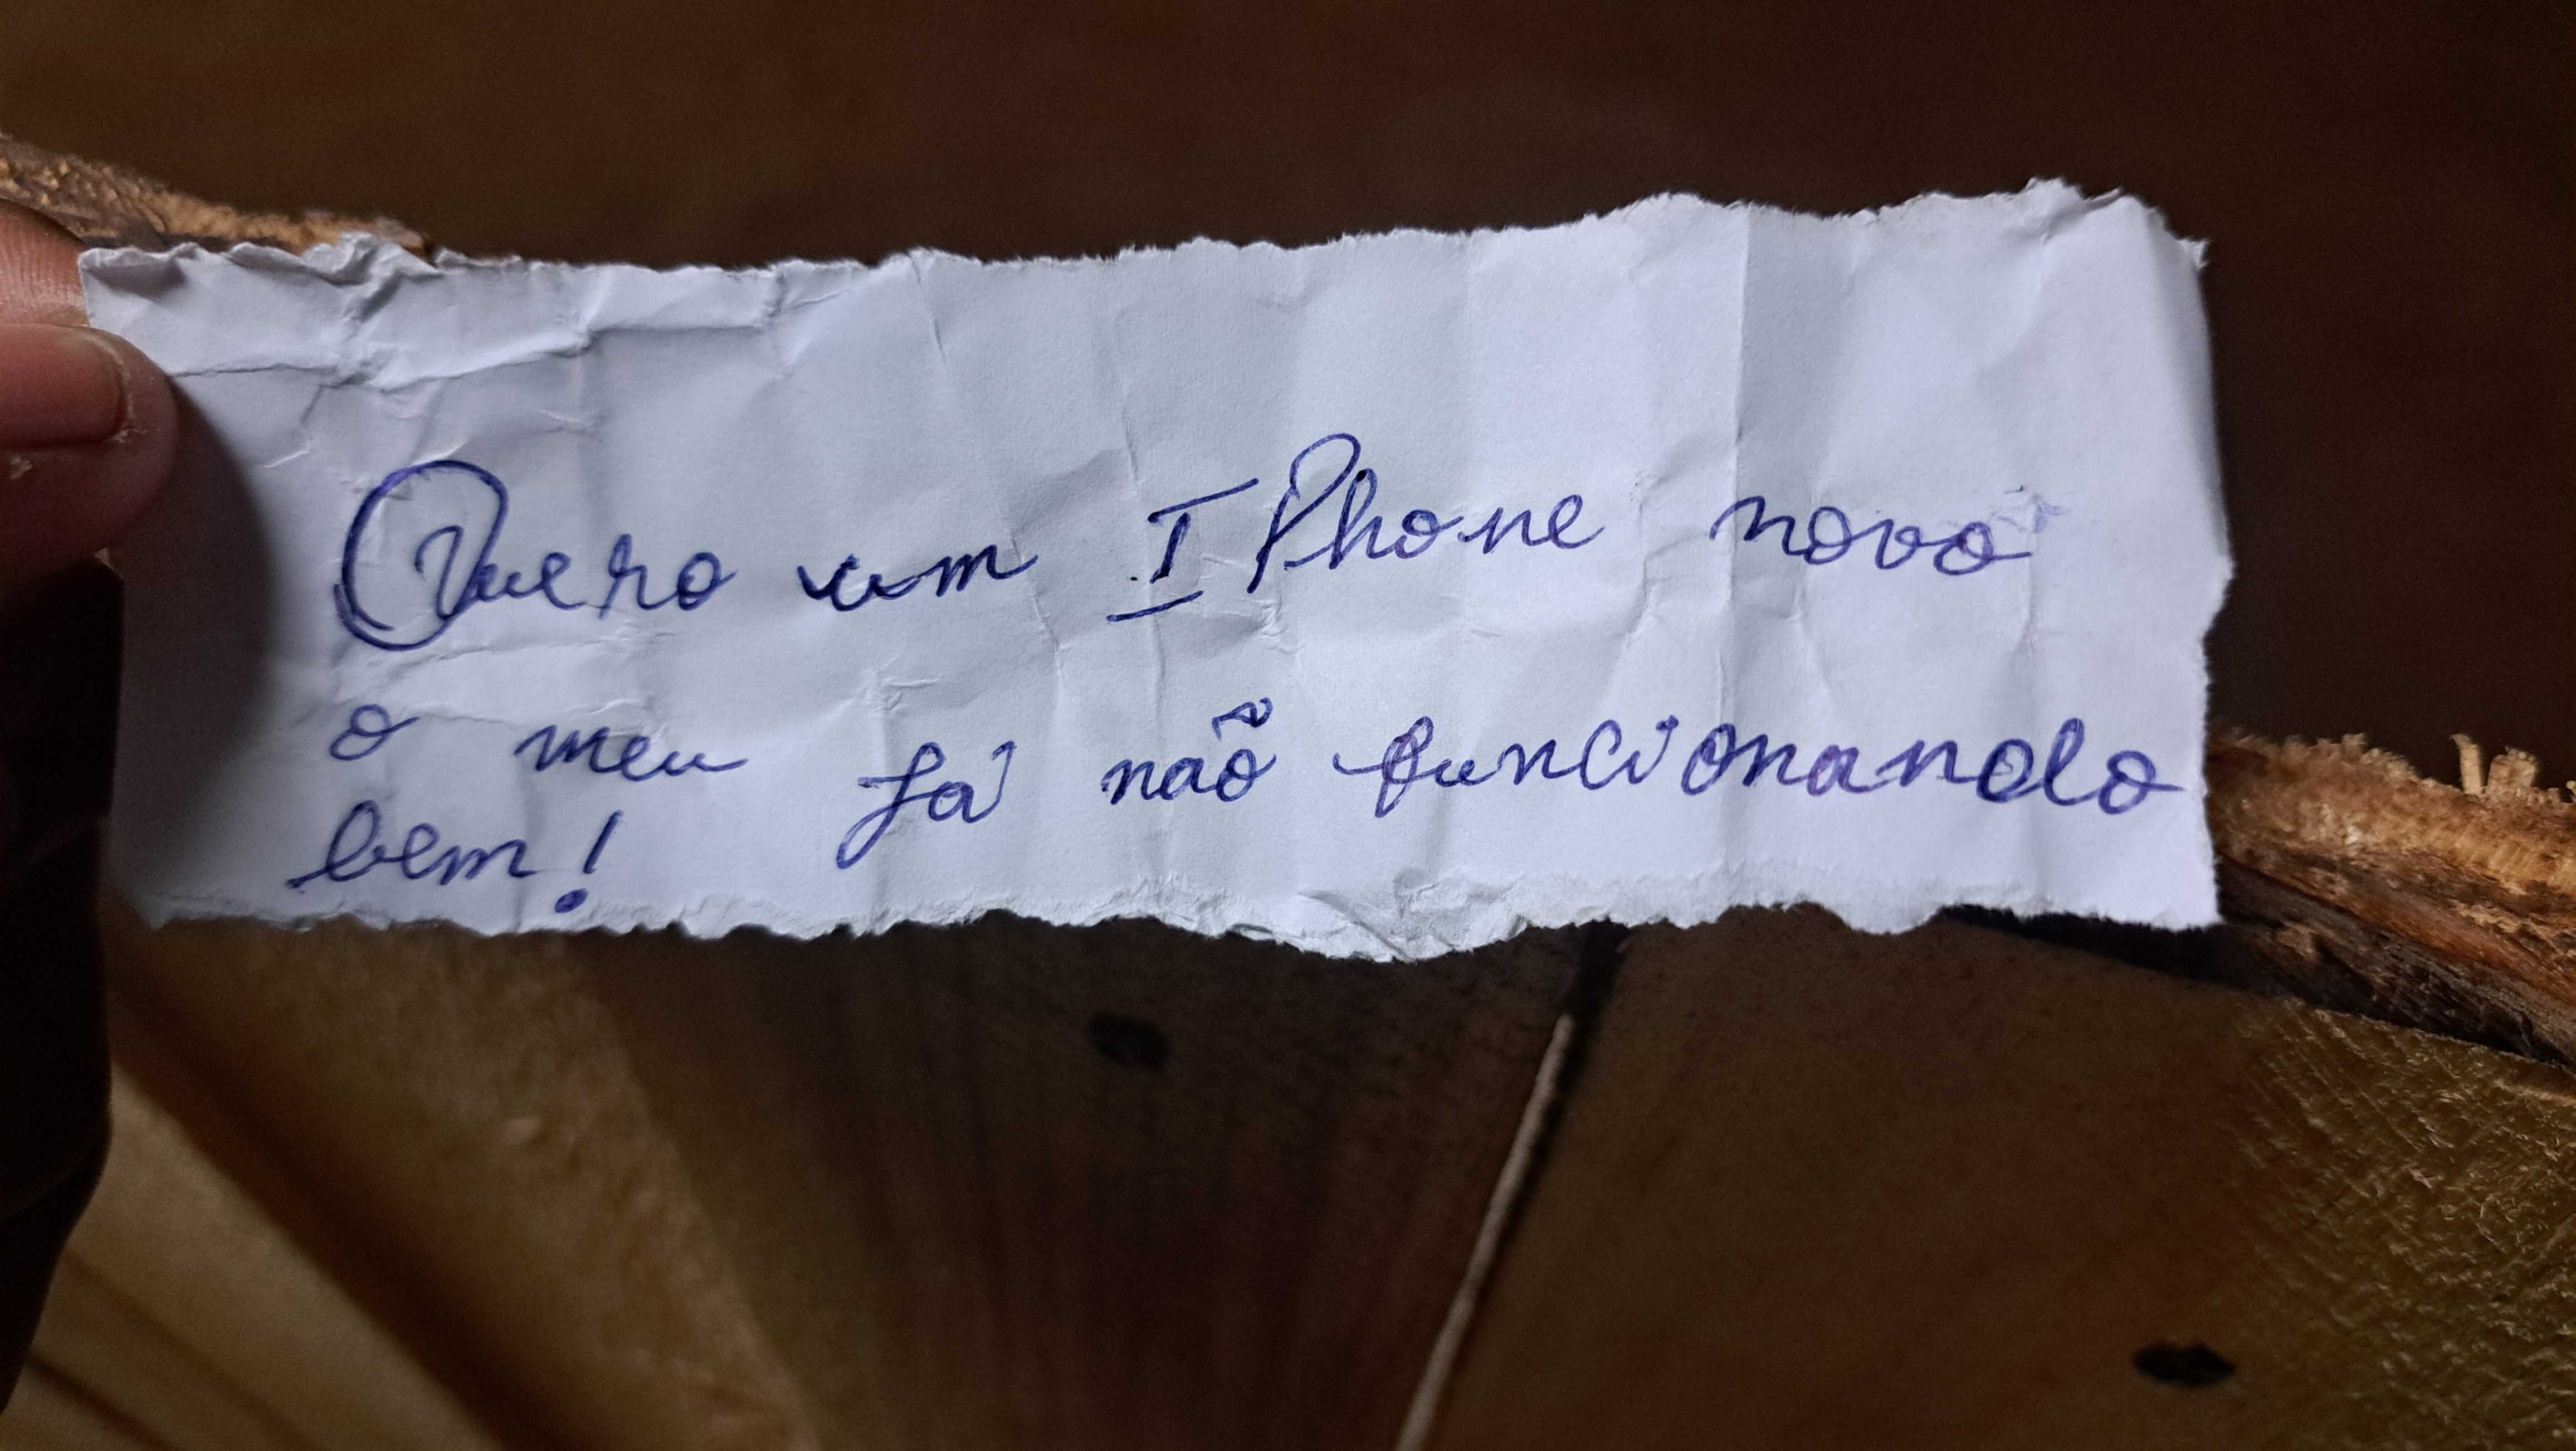 Quero um I Phone novo
o meu já não funcionando
bem!